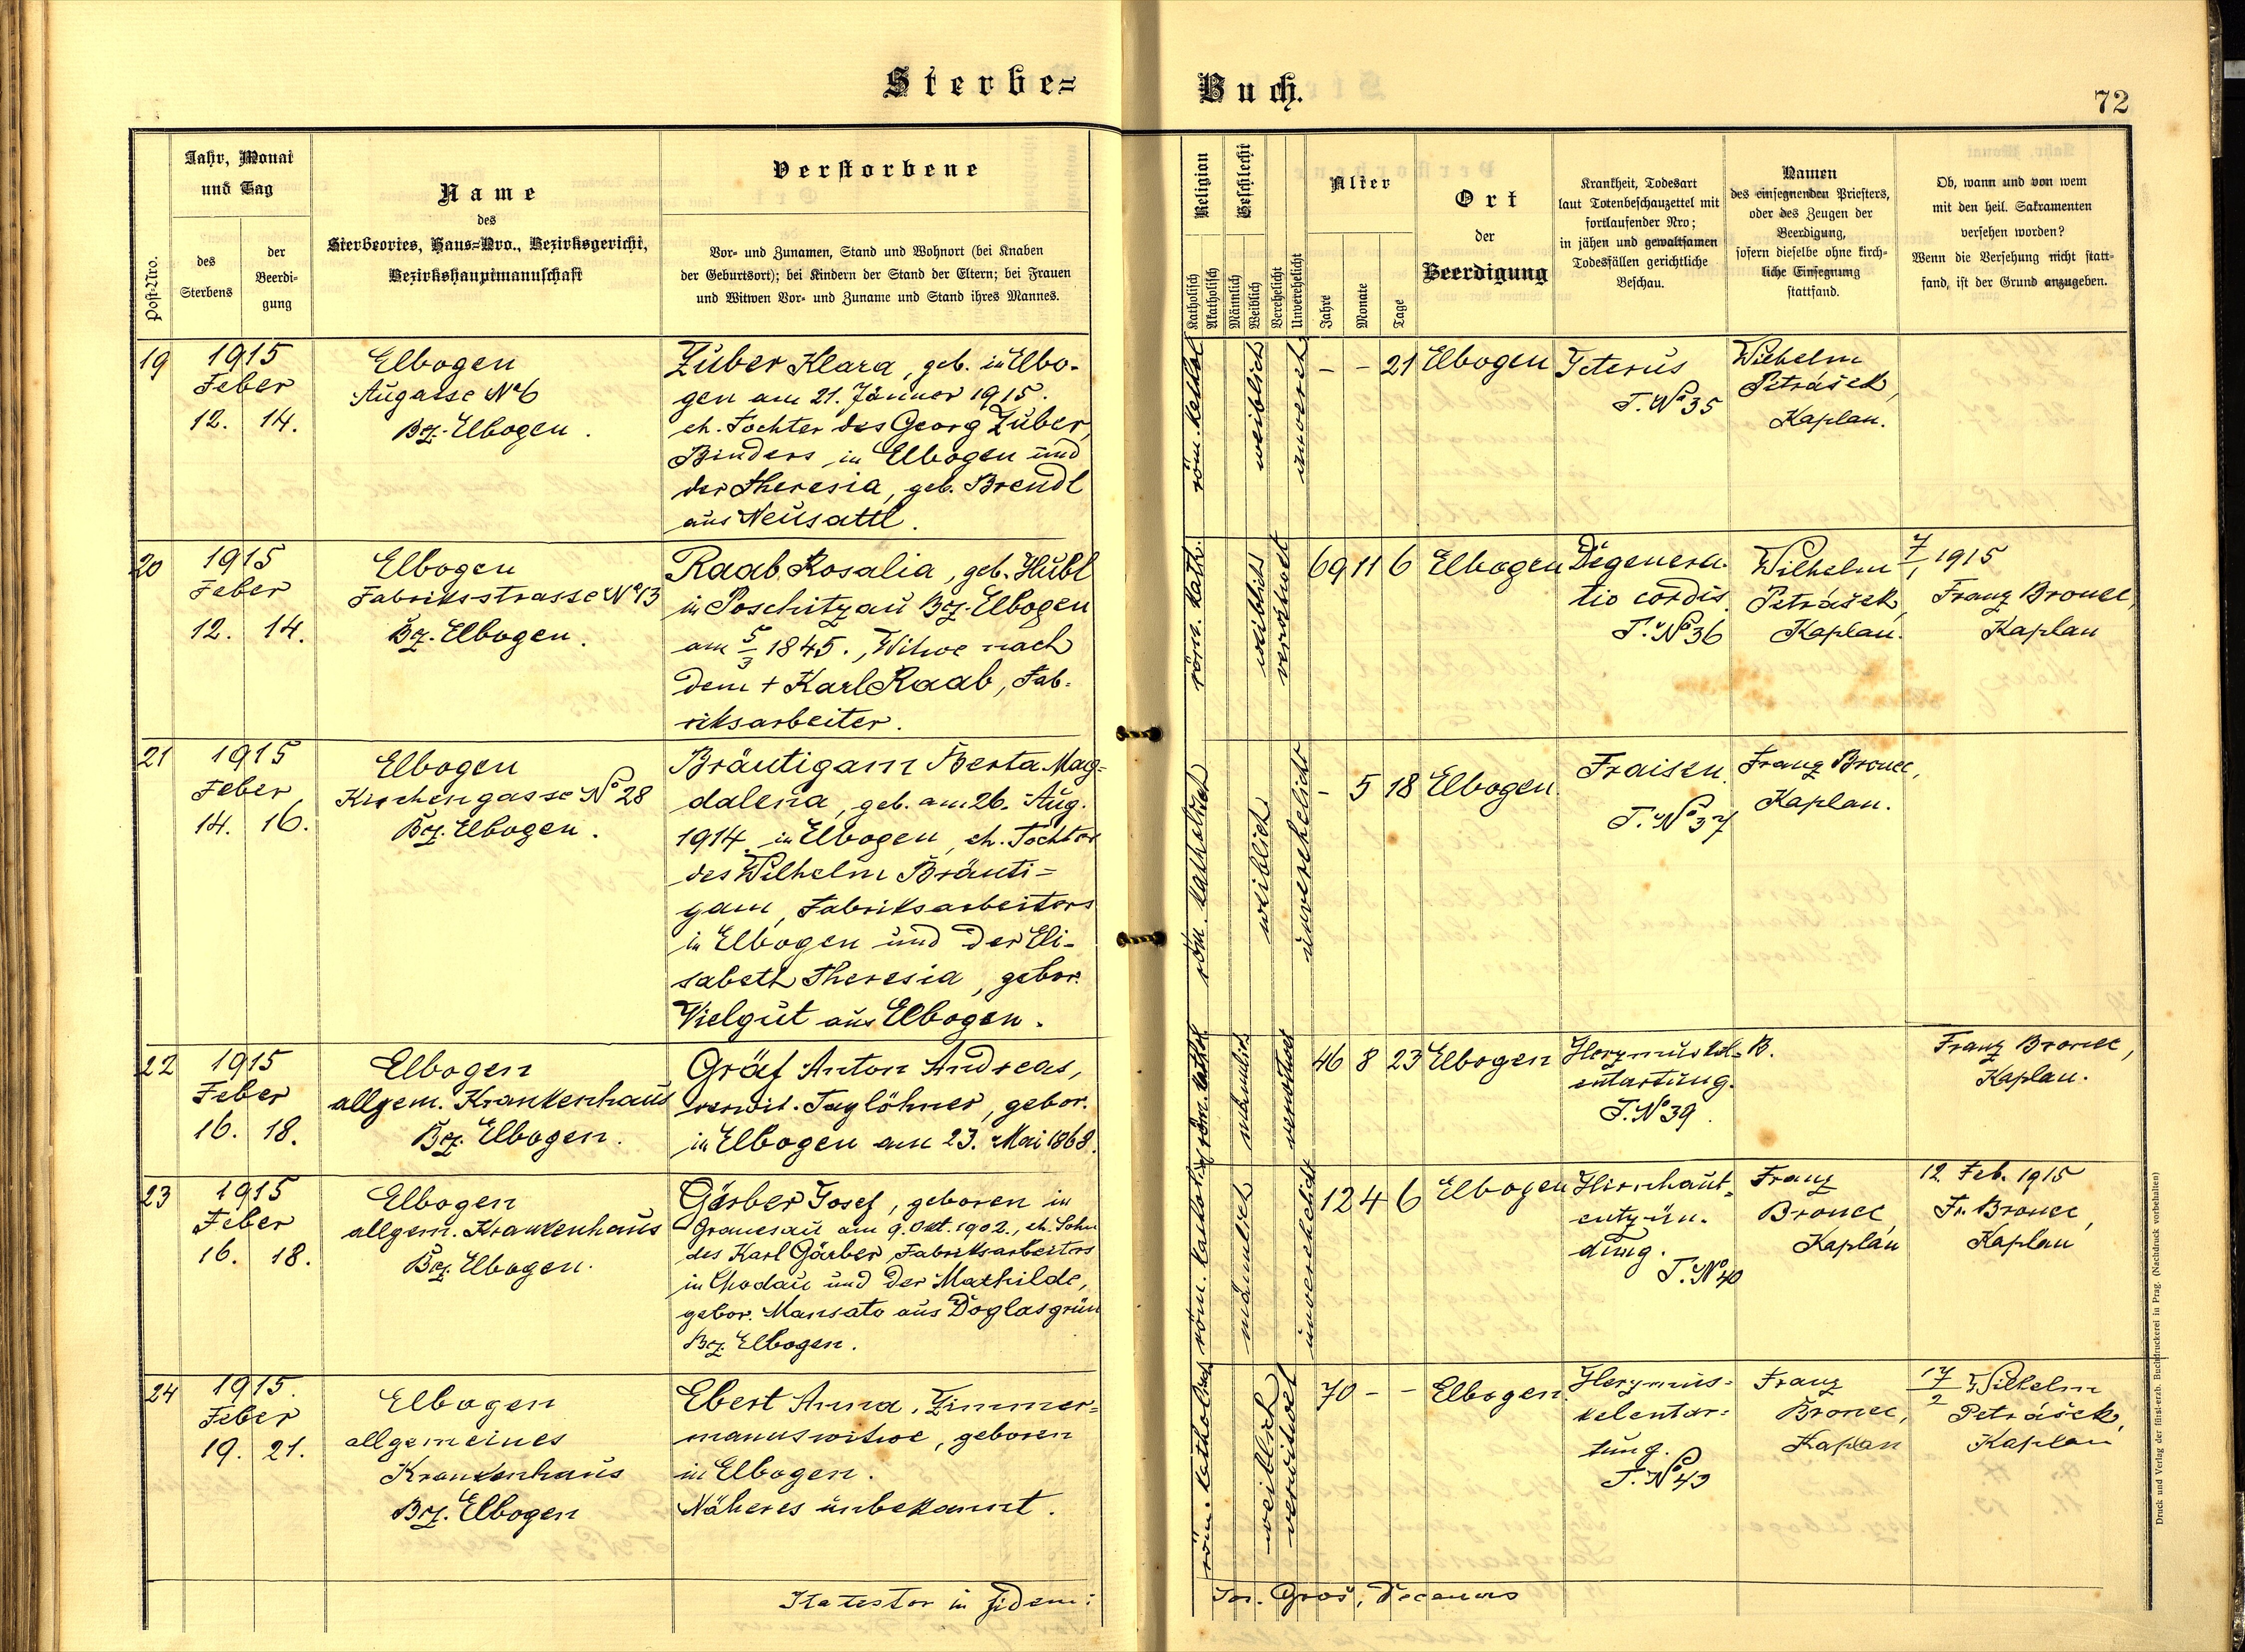 Sterbe=
Buch.
72
Post-Nro.
Jahr, Monat
und Tag
des
Sterbens
der
Beerdi-
gung
Name
des
Sterbeortes, Haus-Nro., Bezirksgericht,
Bezirkshauptmannschaft
Verstorbene
Vor- und Zunamen, Stand und Wohnort (bei Knaben
der Geburtsort); bei Kindern der Stand der Eltern; bei Frauen
und Witwen Vor- und Zuname und Stand ihres Mannes.
Religion
Katholisch
Akatholisch
Geschlecht
Männlich
Weiblich
Verehelicht
Unverehelicht
Alter
Jahre
Monate
Tage
Ort
der
Beerdigung
Krankheit, Todesart
laut Totenbeschauzettel mit
fortlaufender Nro;
in jähen und gewaltsamen
Todesfällen gerichtliche
Beschau.
Namen
des einsegnenden Priesters,
oder des Zeugen der
Beerdigung,
sofern dieselbe ohne kirch-
liche Einsegnung
stattfand.
Ob, wann und von wem
mit den heil. Sakramenten
versehen worden?
Wenn die Versehung nicht statt-
fand, ist der Grund anzugeben.
19
1915
Feber
12. 14.
Elbogen
Augasse No 6
Bez. Elbogen.
Zuber Klara, geb. in Elbo-
gen am 21. Jänner 1915.
eh. Tochter des Georg Zuber,
Binders in Elbogen und
der Theresia, geb. Brendl
aus Neusattl.
röm. kathol
weiblich
unvereh
- - 21
Elbogen
Icterus
T. No 35
Wilhelm
Petrášek,
Kaplan.
20
1915
Feber
12. 14.
Elbogen
Fabriksstrasse No 13
Bez. Elbogen.
Raab Rosalia, geb. Hübl
in Poschitzau Bez. Elbogen
am 5/3 1845., Witwe nach
dem + Karl Raab, Fab-
riksarbeiter.
röm. kath.
weiblich
verwitwet
69 11 6
Elbogen
Degenera-
tio cordis
T. No 36
Wilhelm
Petrášek,
Kaplan.
7/1 1915
Franz Bronec,
Kaplan
21
1915
Feber
14. 16.
Elbogen
Kirchengasse No 28
Bez. Elbogen.
Bräutigam Berta Mag=
dalena, geb. am 26. Aug.
1914 in Elbogen, eh. Tochter
des Wilhelm Bräuti=
gam, Fabriksarbeiters
in Elbogen und der Eli-
sabeth Theresia, gebor.
Vielgut aus Elbogen.
röm. katholisch
weiblich
unverehelicht
- 5 18
Elbogen.
Fraisen.
T. No 37
Franz Bronec,
Kaplan.
22
1915
Feber
16. 18.
Elbogen
allgem. Krankenhaus
Bez. Elbogen.
Gräf Anton Andreas,
verwit. Taglöhner, gebor.
in Elbogen am 23. Mai 1868.
röm. kathol
männlich
verwitwet
46 8 23
Elbogen
Herzmuskel-
entartung.
T. No 39.
B.
Franz Bronec,
Kaplan.
23
1915
Feber
16. 18.
Elbogen
allgem. Krankenhaus
Bez. Elbogen.
Gärber Josef, geboren in
Granesau am 9. Okt. 1902., eh. Sohn
des Karl Gärber Fabriksarbeiters
in Chodau und der Mathilde,
gebor. Mansato aus Doglasgrün
Bez. Elbogen.
röm. katholisch
männlich
unverehelicht
12 4 6
Elbogen
Hirnhaut-
entzün-
dung.
T. No 40
Franz
Bronec,
Kaplan
12. Feb. 1915
Fr. Bronec,
Kaplan
24
1915.
Feber
19. 21.
Elbogen
allgemeines
Krankenhaus
Bez. Elbogen
Ebert Anna, Zimmer=
mannswitwe, geboren
in Elbogen.
Näheres unbekannt.
röm. katholisch
weiblich
verwitwet
70 - -
Elbogen.
Herzmus-
kelentar-
tung.
T. No 43
Franz
Bronec,
Kaplan
17/2 Wilhelm
Petrášek,
Kaplan
Ita testor in fidem:
Jos. Gros, Decanus
Druck und Verlag der fürst-erzb. Buchdruckerei in Prag. (Nachdruck vorbehalten)